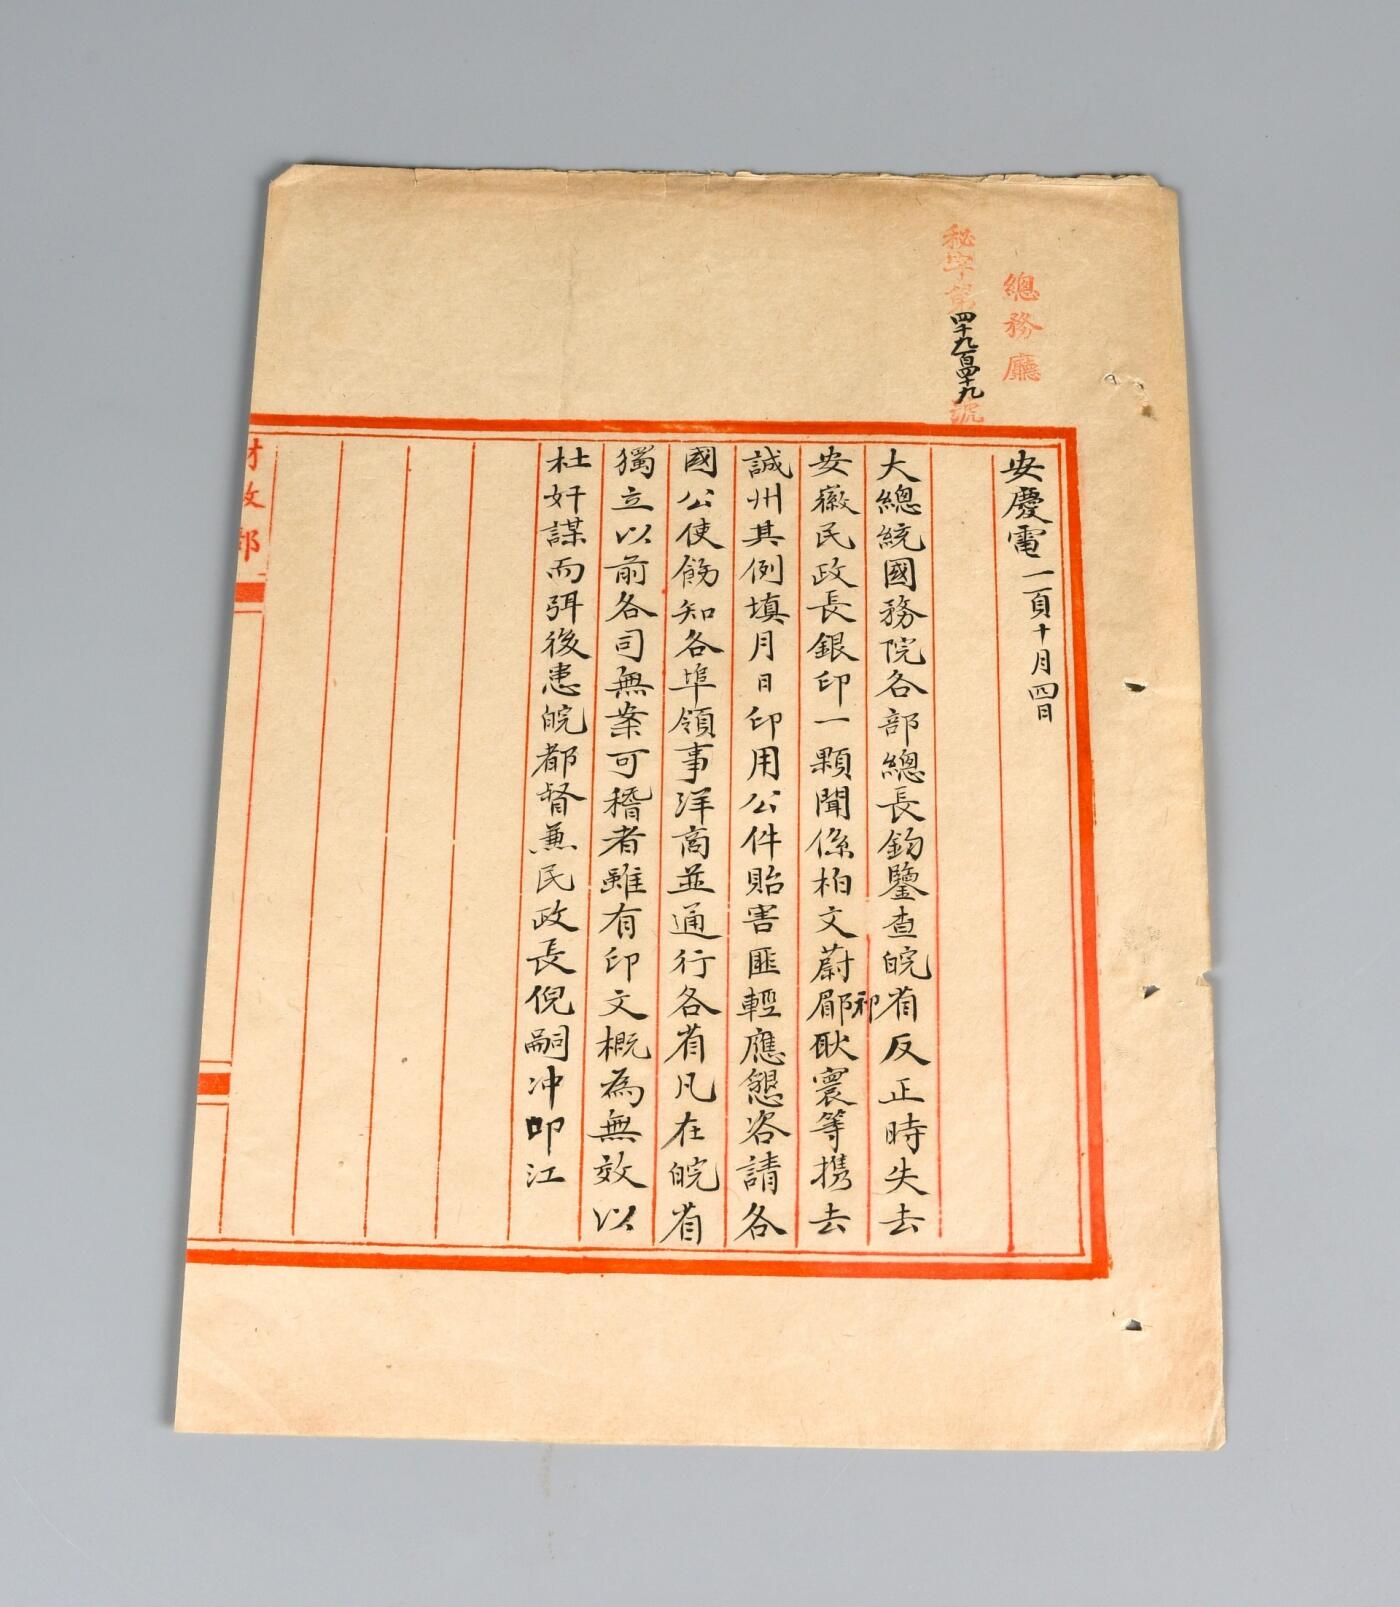 總務廳
秘字第四千九百四十九號
安慶電 一百十月四日
大總統國務院各部總長鈞鑒查皖省反正時失去
安徽民政長銀印一顆聞係柏文蔚鄖祁耿寰等携去
誠州其例填月日印用公件貽害匪輕應懇咨請各
國公使飭知各埠領事洋商並通行各省凡在皖省
獨立以前各司無案可稽者雖有印文概為無效以
杜奸謀而弭後患皖都督兼民政長倪嗣冲叩江
財政部